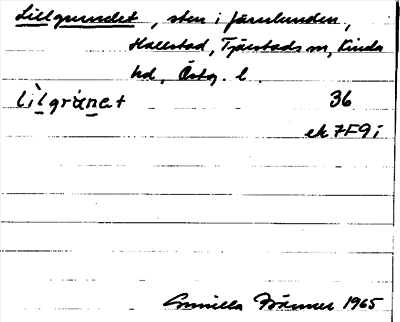 Lillgrundet, sten i Järnlunden,
Hallstad, Tjärstads sn, Kinda
hd, Östg. l.
lìlgrúnet 36
ek 7F9i
1965